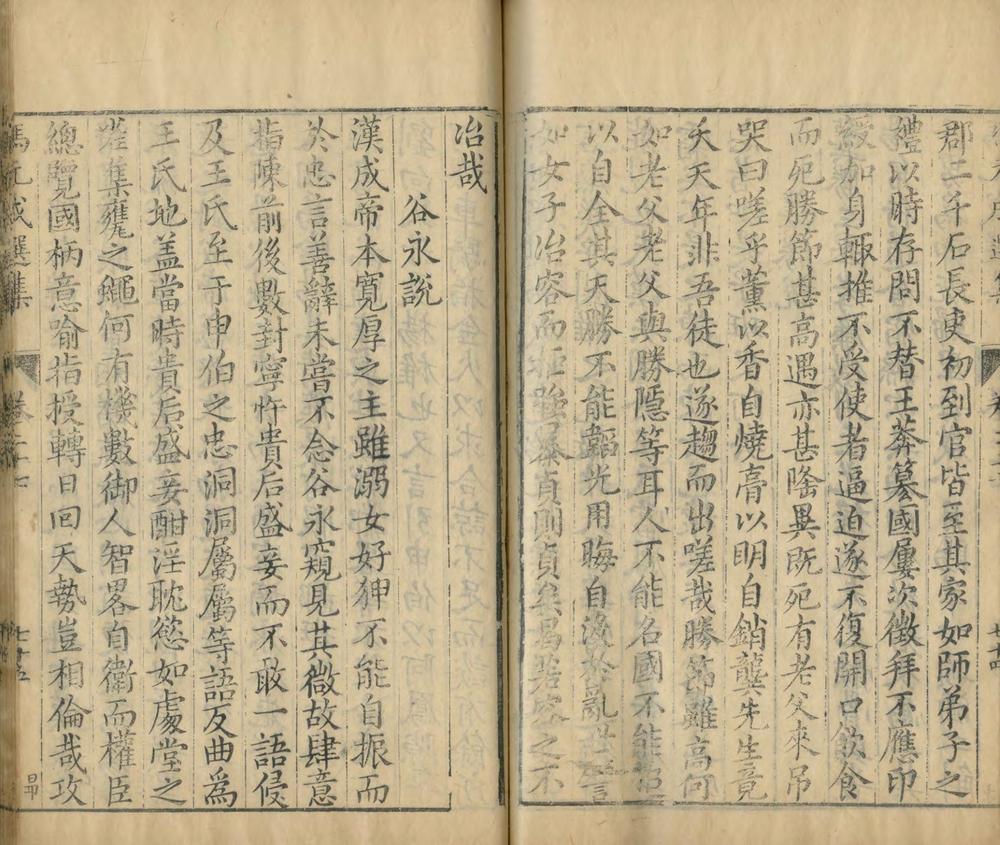 郡二千石長吏初到官皆至其家如師弟子之
禮以時存問不替王莽篡國屢次徵拜不應印
綬加身輙推不受使者逼迫遂不復開口飲食
而死勝節甚高遇亦甚隆異既死有老父來吊
哭曰嗟乎薫以香自燒膏以明自銷龔先生竟
夭天年非吾徒也遂趨而出嗟哉勝節雖高何
如老父老父與勝隱等耳人不能名國不能
以自全其天勝不能韜光用晦自於亂世
如女子冶容而暴貞則貞矣曷若之不
冶哉
谷永說
漢成帝本寛厚之主雖溺女好狎不能自振而
於忠言善辭未嘗不念谷永窺見其微故肆意
指陳前後數封寧忤貴后盛妾而不敢一語侵
及王氏至于申伯之忠洞洞屬屬等語反曲為
王氏地盖當時貴后盛妾酣淫耽慾如處堂之
集甕之蠅何有機數御人智畧自衛而權臣
總覽國柄意喻指授轉日回天勢豈相倫哉攻
馮元成選集
卷二十七
七十五